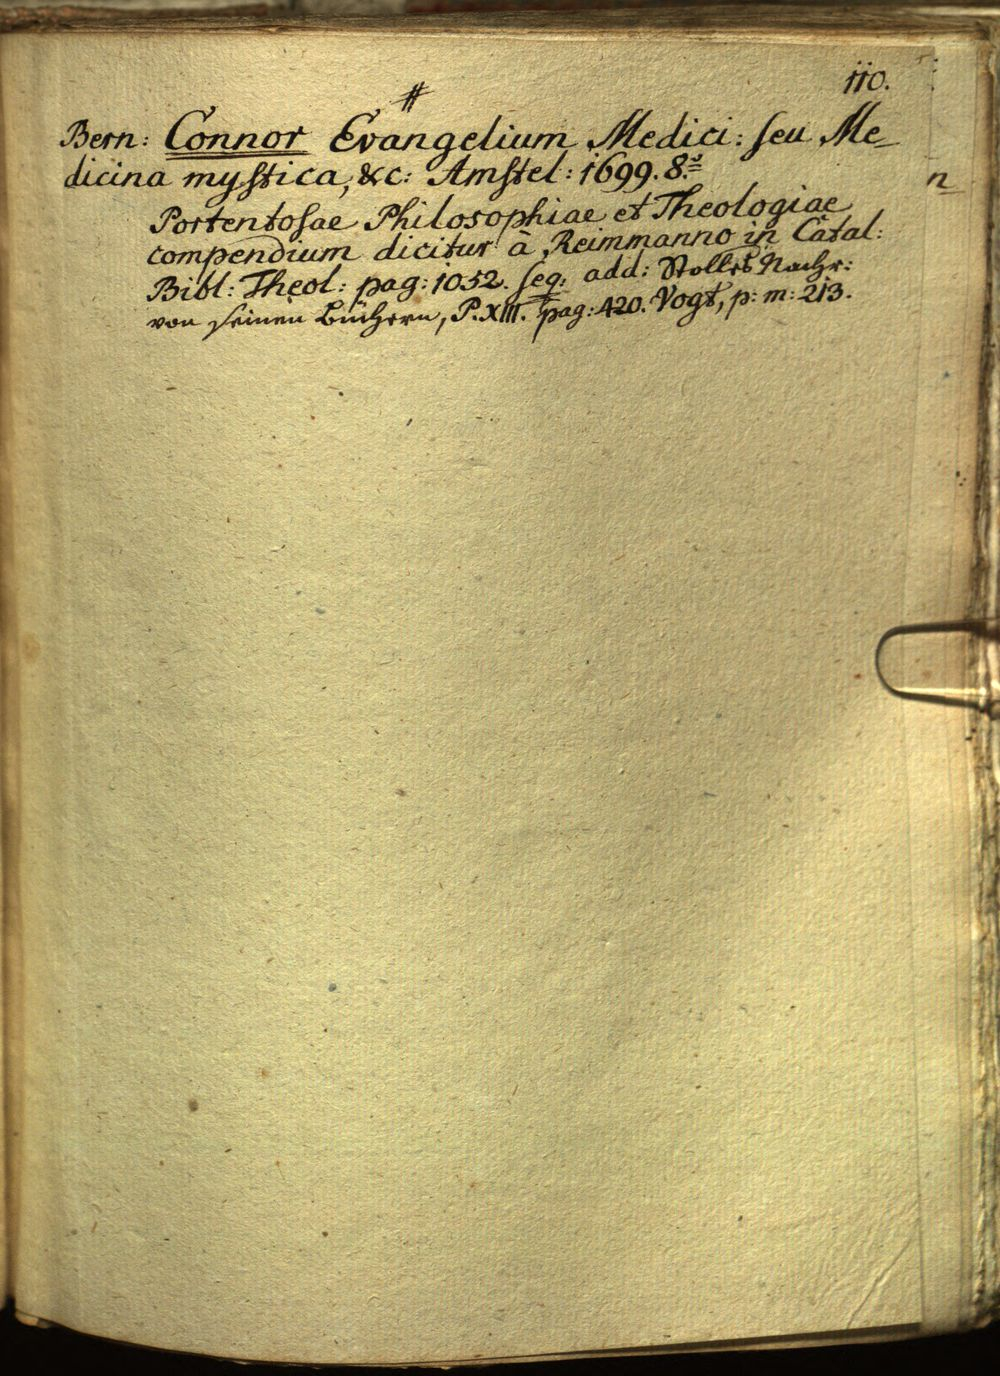 110.
#
Bern: Connor Evangelium Medici: seu Me-
dicina mystica, &c: Amstel: 1699. 8.º
Portentosae Philosophiae et Theologiae
compendium dicitur à Reimmanno in Catal:
Bibl: Theol: pag: 1052. seq: add: Stolles Nachr:
von seinen Büchern, P. XIII. pag: 420. Vogt, p: m: 213.
n